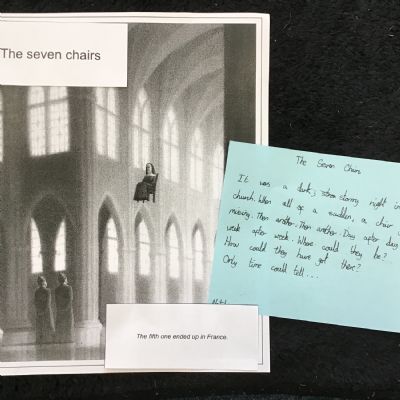 The seven chairs
The fifth one ended up in France.
The Seven Chairs
It was a dark, stormy night in
church. When all of a sudden, a chair
missing. Then another. Then another. Day after day
week after week. Where could they be?
How could they have got there?
Only time could tell...